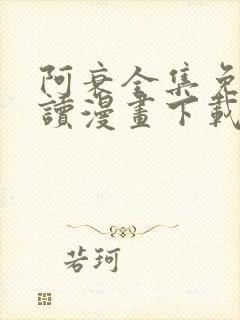 阿衰全集免
讀漫畫下載
若珂